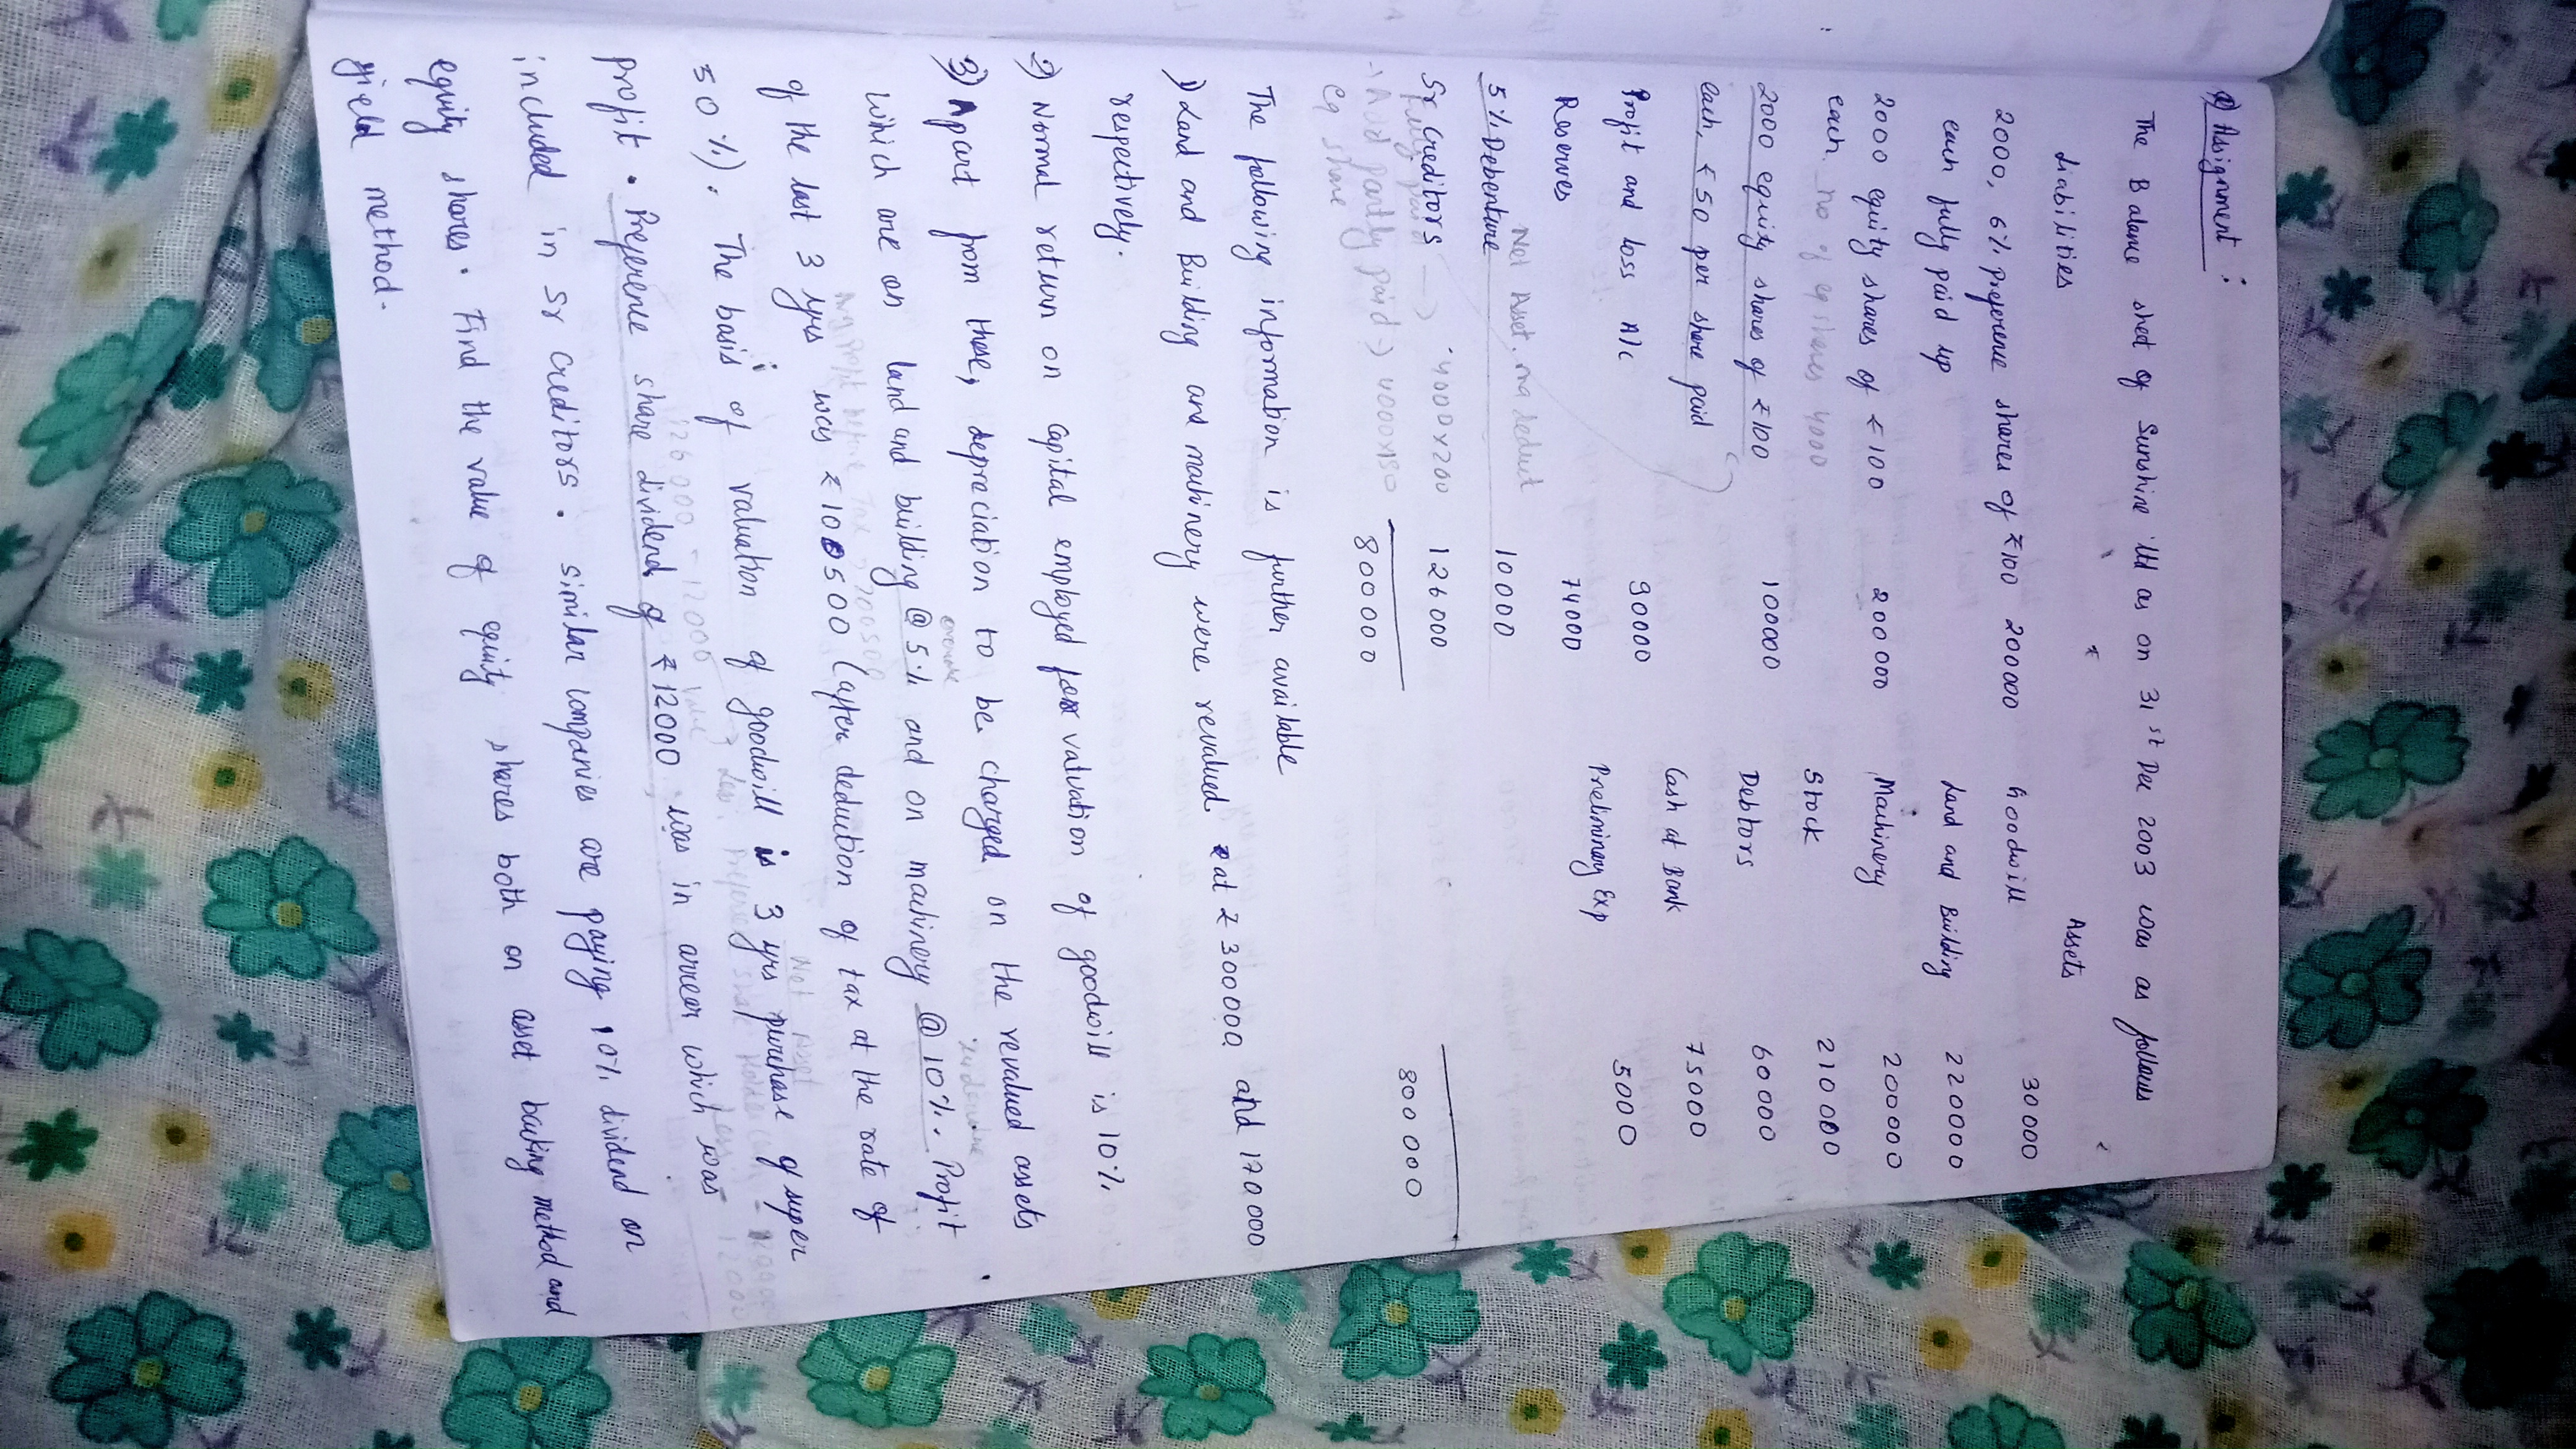 1) Assignment :
The Balance sheet of Sunshine ltd as on 31st Dec 2003 was as follows
Liabilities ₹ Assets ₹
2000, 6% preference shares of ₹100 200000 Goodwill 30000
each fully paid up Land and Building 220000
2000 equity shares of ₹100 200000 Machinery 200000
each. no of eq shares 4000 Stock 210000
2000 equity shares of ₹100 100000 Debtors 60000
each, ₹50 per share paid Cash at Bank 75000
Profit and loss A/c 90000 Preliminary Exp 5000
Reserves 74000
Net Asset. ma deduct
5% Debenture 10000
Sr Creditors 4000x200 126000
Fully paid →
800000 800000
→ Add partly paid → 4000x150
eq share
The following information is further available
1) Land and Building and machinery were revalued at ₹ 300000 and 170000
respectively.
2) Normal return on capital employed for valuation of goodwill is 10%
3) Apart from these, depreciation to be charged on the revalued assets
which are on land and building @ 5% and on machinery @ 10%. Profit
Avg Profit before Tax → 200500
of the last 3 yrs was ₹100500 (after deduction of tax at the rate of
Net Asset
50%). The basis of valuation of goodwill is 3 yrs purchase of super
126000 - 12000
profit. Preference share dividend of ₹12000 was in arrear which was
included in Sr Creditors. Similar companies are paying 10% dividend on
equity shares. Find the value of equity shares both on asset backing method and
yield method.